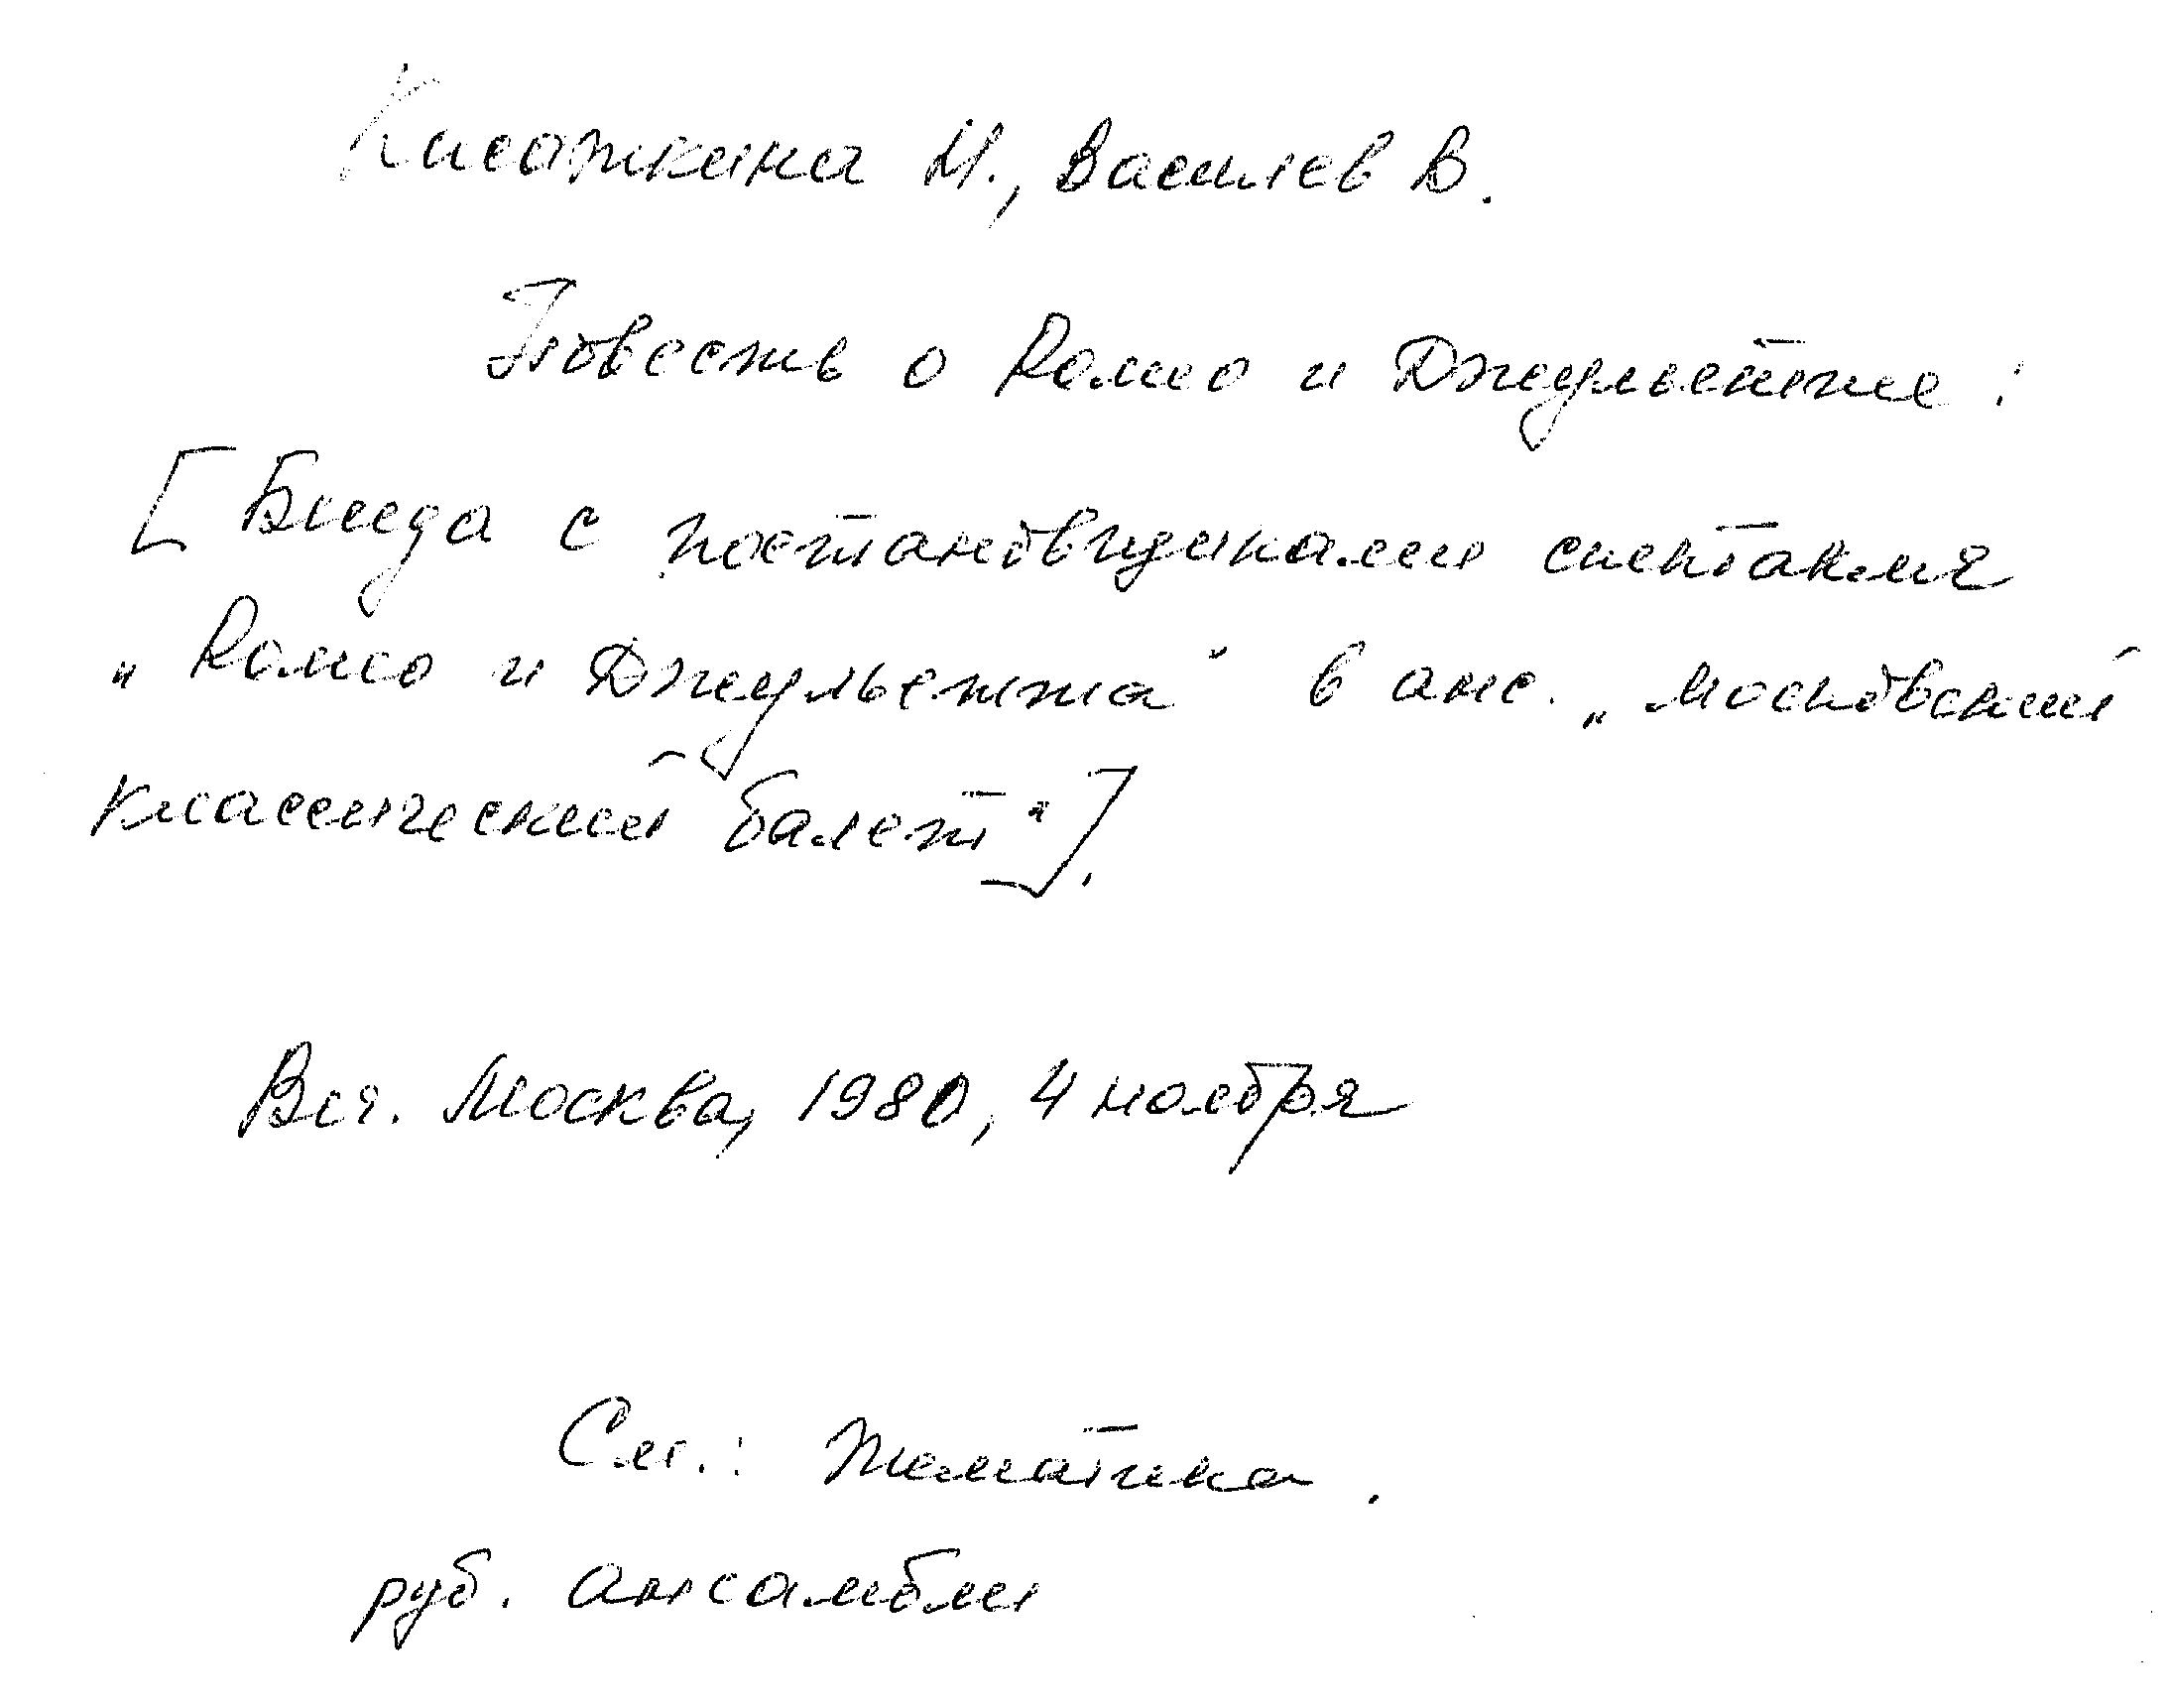 Касаткина Н., Василев В.
Повесть о Ромео и Джульетте :
[Беседа с постановщиками спектакля
„Ромео и Джульетта" в анс. „Московский
классический балет"].
Веч. Москва, 1980, 4 ноября
См.: Тематика.
руб. ансамбли